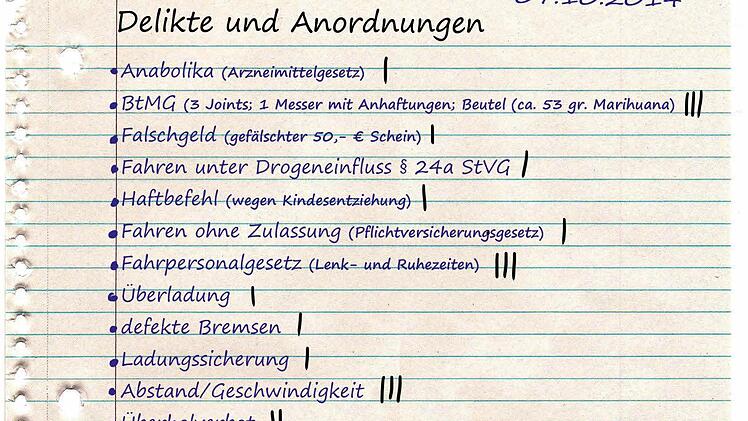 Delikte und Anordnungen
• Anabolika (Arzneimittelgesetz) |
• BtMG (3 Joints; 1 Messer mit Anhaftungen; Beutel (ca. 53 gr. Marihuana) |||
• Falschgeld (gefälschter 50,- € Schein) |
• Fahren unter Drogeneinfluss § 24a StVG |
• Haftbefehl (wegen Kindesentziehung) |
• Fahren ohne Zulassung (Pflichtversicherungsgesetz) |
• Fahrpersonalgesetz (Lenk- und Ruhezeiten) |||
• Überladung |
• defekte Bremsen |
• Ladungssicherung |
• Abstand/Geschwindigkeit |||
• Überholverbot ||